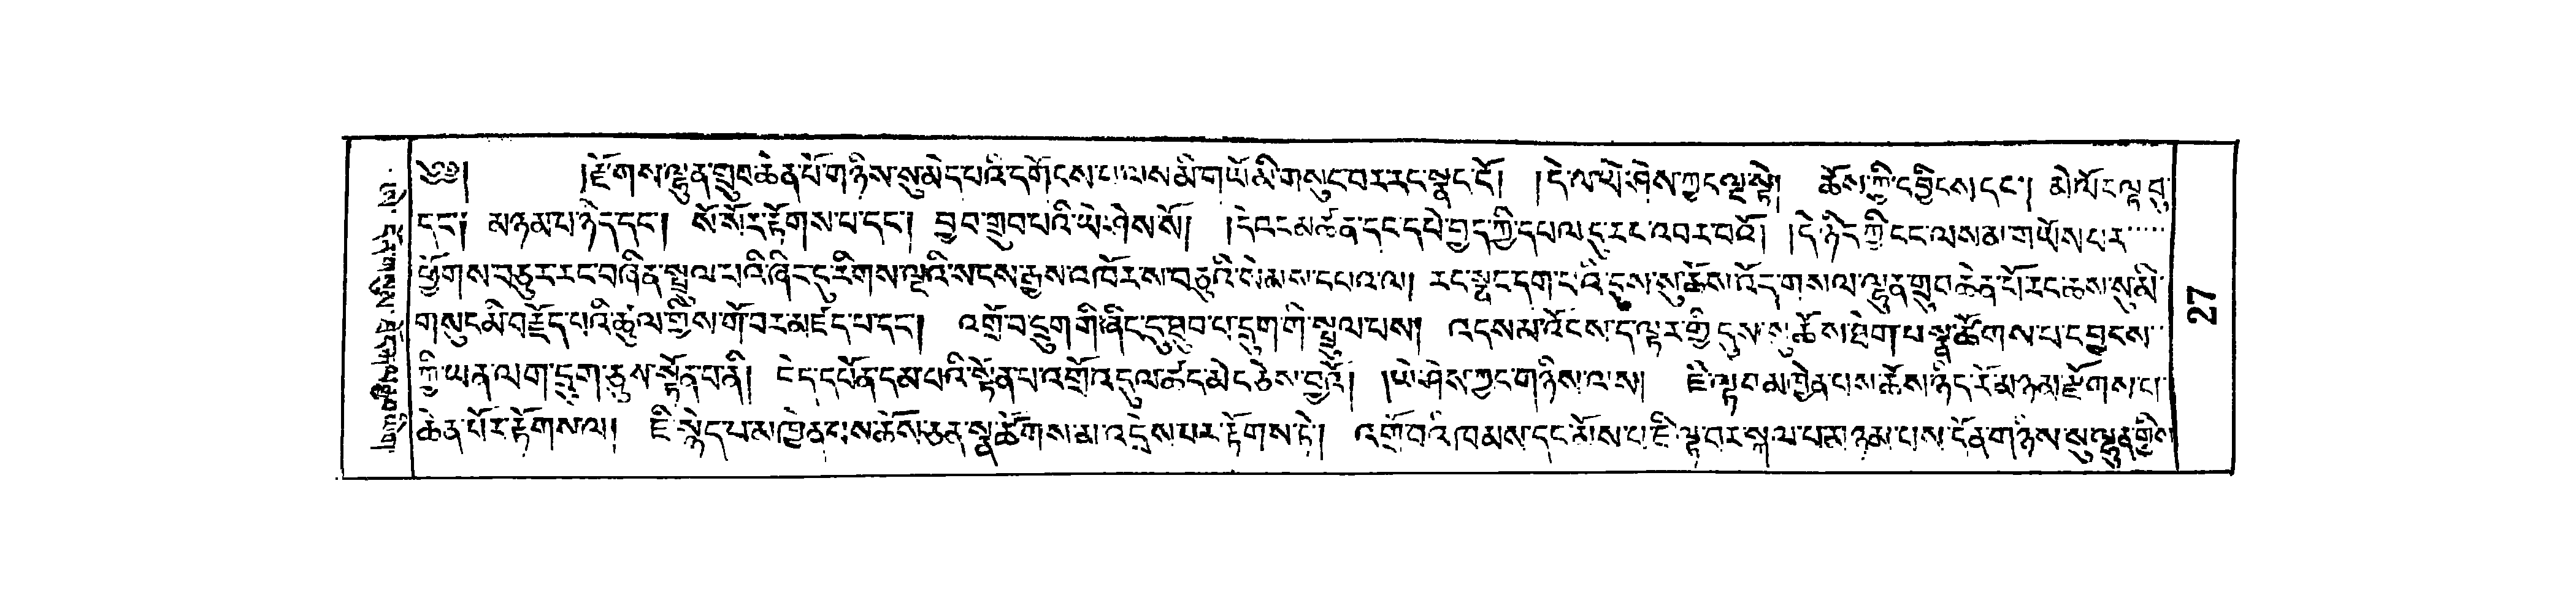 ༄༅། །རྫོགས་ལྷུན་གྲུབ་ཆེན་པོ་གཉིས་སུ་མེད་པའི་དགོངས་པ་ལས་མི་གཡོ་མི་གསུང་བར་རང་སྣང་ངོ༌། །དེ་ལ་ཡེ་ཤེས་ཀྱང་ལྔ་སྟེ། ཆོས་ཀྱི་དབྱིངས་དང༌། མེ་ལོང་ལྟ་བུ་
དང༌། མཉམ་པ་ཉིད་དང༌། སོ་སོར་རྟོགས་པ་དང༌། བྱ་བ་གྲུབ་པའི་ཡེ་ཤེས་སོ། །དེ་བང་མཚན་དང་དཔེ་བྱད་ཀྱི་དཔལ་དུ་རང་འབར་བའོ། །དེ་ཉིད་ཀྱི་ངང་ལས་མ་གཡོས་པར་
ཕྱོགས་བཅུར་རང་བཞིན་སྤྲུལ་པའི་ཞིང་དུ་རིགས་ལྔའི་སངས་རྒྱས་འཁོར་ས་བཅུའི་སེམས་དཔའ་ལ། རང་སྣང་དག་པའི་དུས་སུ་ཆོས་འོད་གསལ་ལྷུན་གྲུབ་ཆེན་པོ་རང་ཆས་སུ་མི་
གསུང་མི་བརྗོད་པའི་ཚུལ་གྱིས་གོ་བར་མཛད་པ་དང༌། འགྲོ་བ་དྲུག་གི་ཞིང་དུ་ཐུབ་པ་དྲུག་གི་སྤྲུལ་པས། འདས་མ་འོངས་ད་ལྟར་གྱི་དུས་སུ་ཆོས་ཐེག་པ་སྣ་ཚོགས་པ་དབྱངས་
ཀྱི་ཡན་ལག་དྲུག་ཅུས་སྟོན་པནི། ངེད་དཔོན་དམ་པའི་སྟོན་པ་འགྲོ་འདུལ་ཚད་མེད་ཅེས་བྱའོ། །ཡེ་ཤེས་ཀྱང་གཉིས་ལ་ས། ཇི་ལྟ་བ་མཁྱེན་པས་ཆོས་ཉིད་རོ་མཉམ་རྫོགས་པ་
ཆེན་པོར་རྟོགས་ལ། ཇི་སྙེད་པ་མཁྱེན་པས་ཆོས་ཅན་སྣ་ཚོགས་མ་འདྲེས་པར་རྟོགས་ཏེ། འགྲོ་བའི་ཁམས་དང་མོས་པ་ཇི་ལྟ་བར་སྐལ་པ་མཉམ་པས་དོན་གཉིས་སུ་ལྷུན་གྱིས